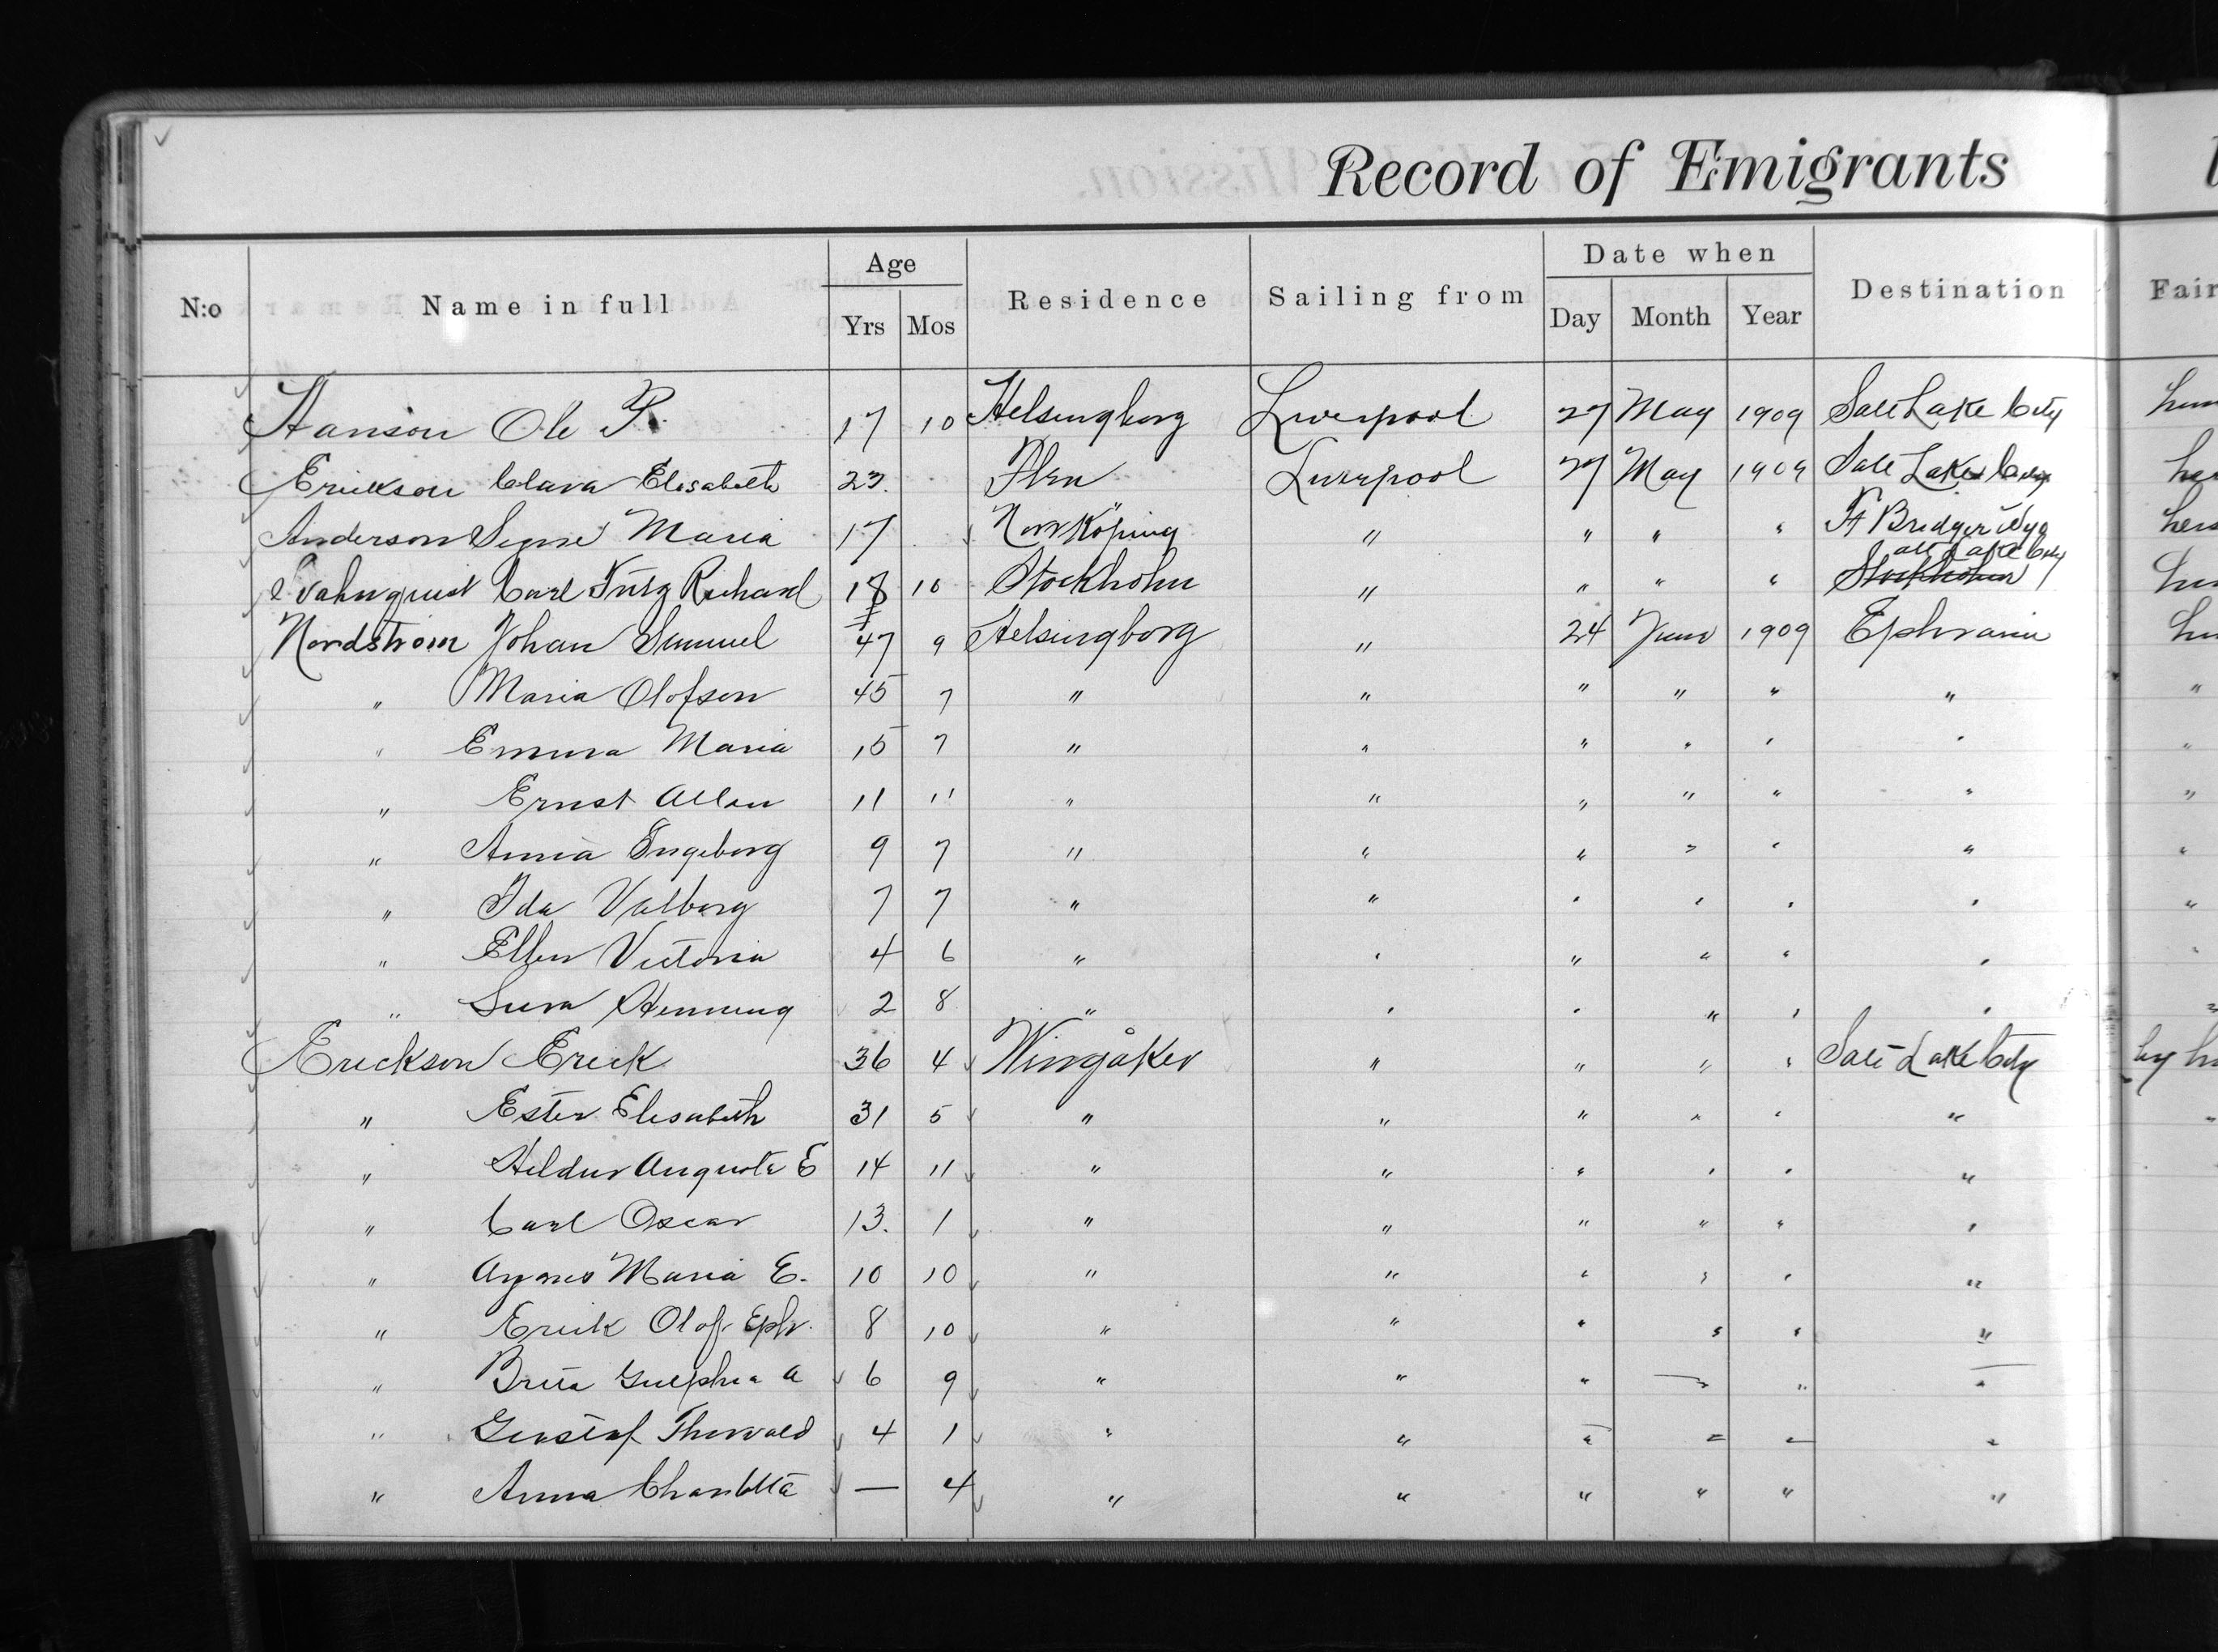 Record of Emigrants
N:o Name in full Age Yrs Mos Residence Sailing from Date when Day Month Year Destination Fair
Hanson Ole P. 17 10 Helsingborg Liverpool 27 May 1909 Salt Lake City
Erickson Clara Elisabeth 23. Flen Liverpool 27 May 1909 Salt Lake City
Anderson Signe Maria 17 Norrköping " " " " Ft Bridger Wyo
Carl Richard 18 10 Stockholm " " " " Stockholm Salt Lake City
Nordstrom Johan Samuel 47 9 Helsingborg " 24 June 1909 Ephraim
" Maria Olofson 45 7 " " " " " " "
" Emma Maria 15 7 " " " " " " "
" Ernst Allan 11 11 " " " " " " "
" Anna Ingeborg 9 7 " " " " " " "
" Ida Valborg 7 7 " " " " " " "
" Ellen Victoria 4 6 " " " " " " "
" Henning 2 8 " " " " " " "
Erickson Erick 36 4 Wingåker " " " " Salt Lake City by
" Ester Elisabeth 31 5 " " " " " " "
" Hildur Augusta E 14 11 " " " " " "
" Carl Oscar 13. 1 " " " " " "
" Agnes Maria E. 10 10 " " " " " "
" Erick Olof Eph. 8 10 " " " " " "
" Brita a 6 9 " " " " " "
" Gustaf Thorvald 4 1 " " " " " "
" Anna Charlotta — 4 " " " " " "